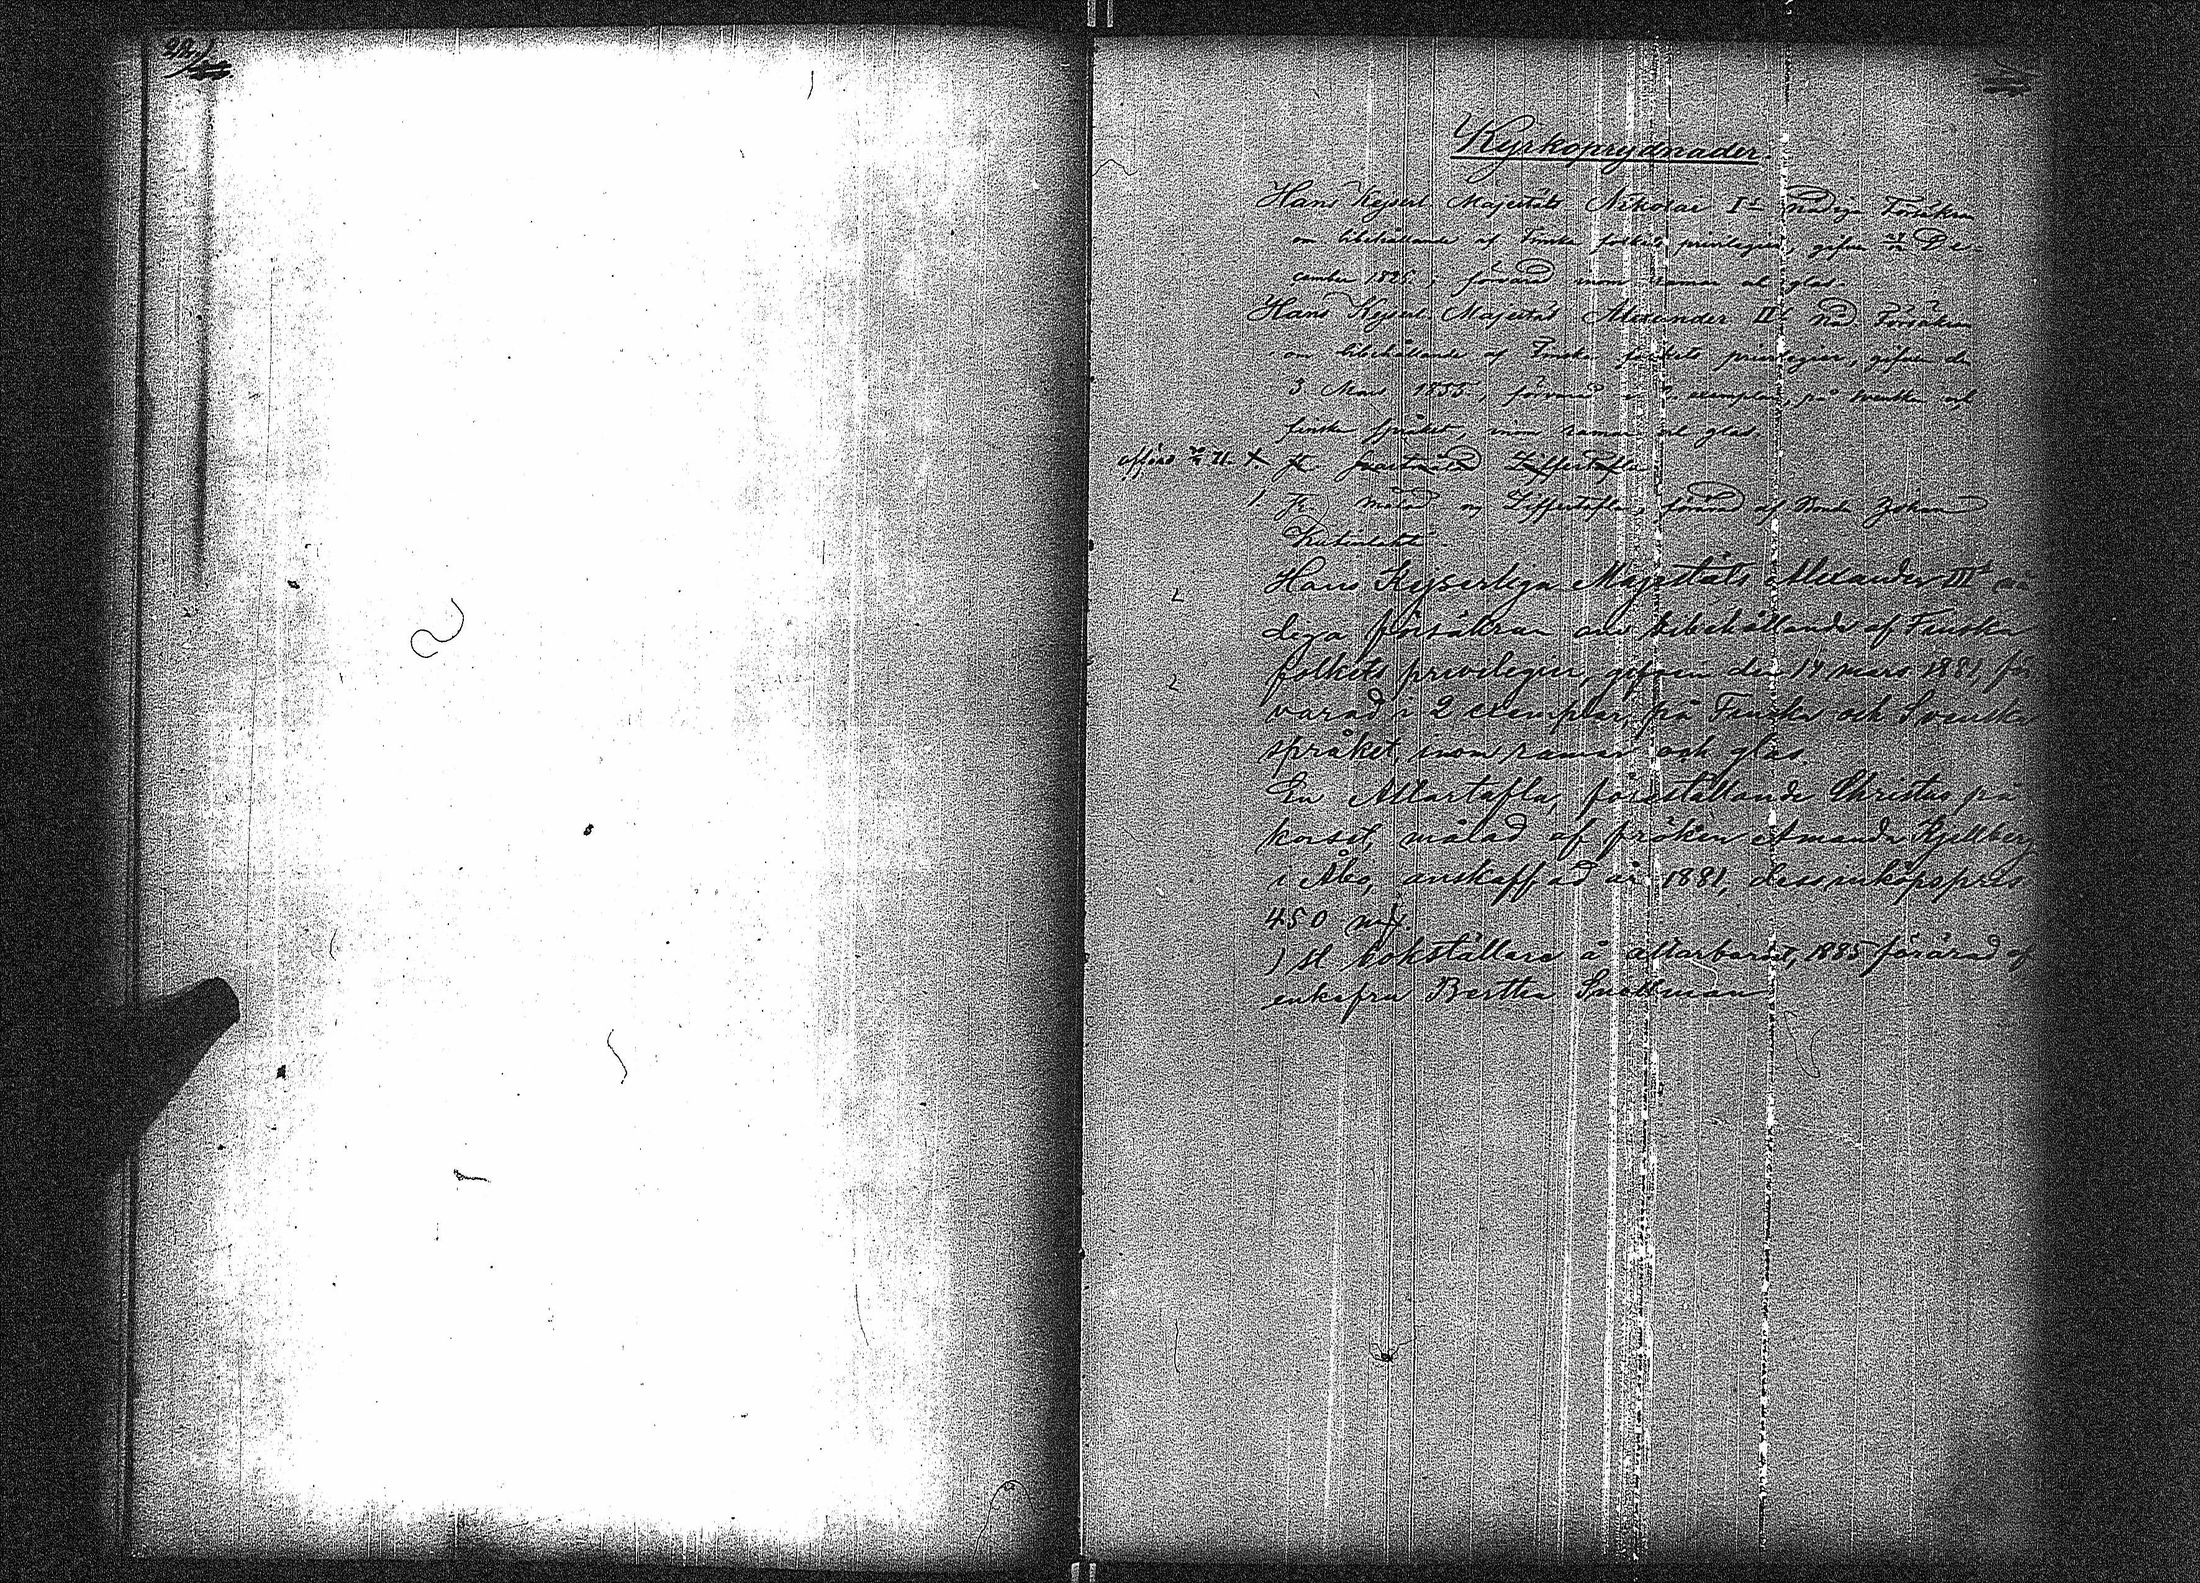 Kyrkoprydnader.
Hans Kejserl Majestäts Nikolai I:s Nådiga Försäkran
om bibehållande af Finska folkets privilegier, gifven De-
cember 1825, förvarad inom ramar och glas.
Hans Kejserl. Majestäts Alexander II:s Nåd Försäkran
om bibehållande af Finska folkets privilegier, gifven den
3 Mars 1855, förvarad i 2 exemplar, på svenska och
finska språket, inom ramar och glas.
1. st. Ziffertafla
1. st målad ny Ziffertafla, förärad af Bonde Johan
Hans Kejserliga Majestäts Alexander III:s nå
diga försäkran om bibehållande af Finska
folkets privilegier, gifven den 14 mars 1881, för
varad i 2 exemplar, på Finska och Svenska
språket, inom ramar och glas.
En Altartafla, föreställande Christus på
korset, målad af fröken Amanda Kjellberg
i Åbo, anskaffad år 1881, dess inköpspris
450 mk.
1 st bokställare å altarbordet, 1885 förärad af
enkefru Bertha Snellman